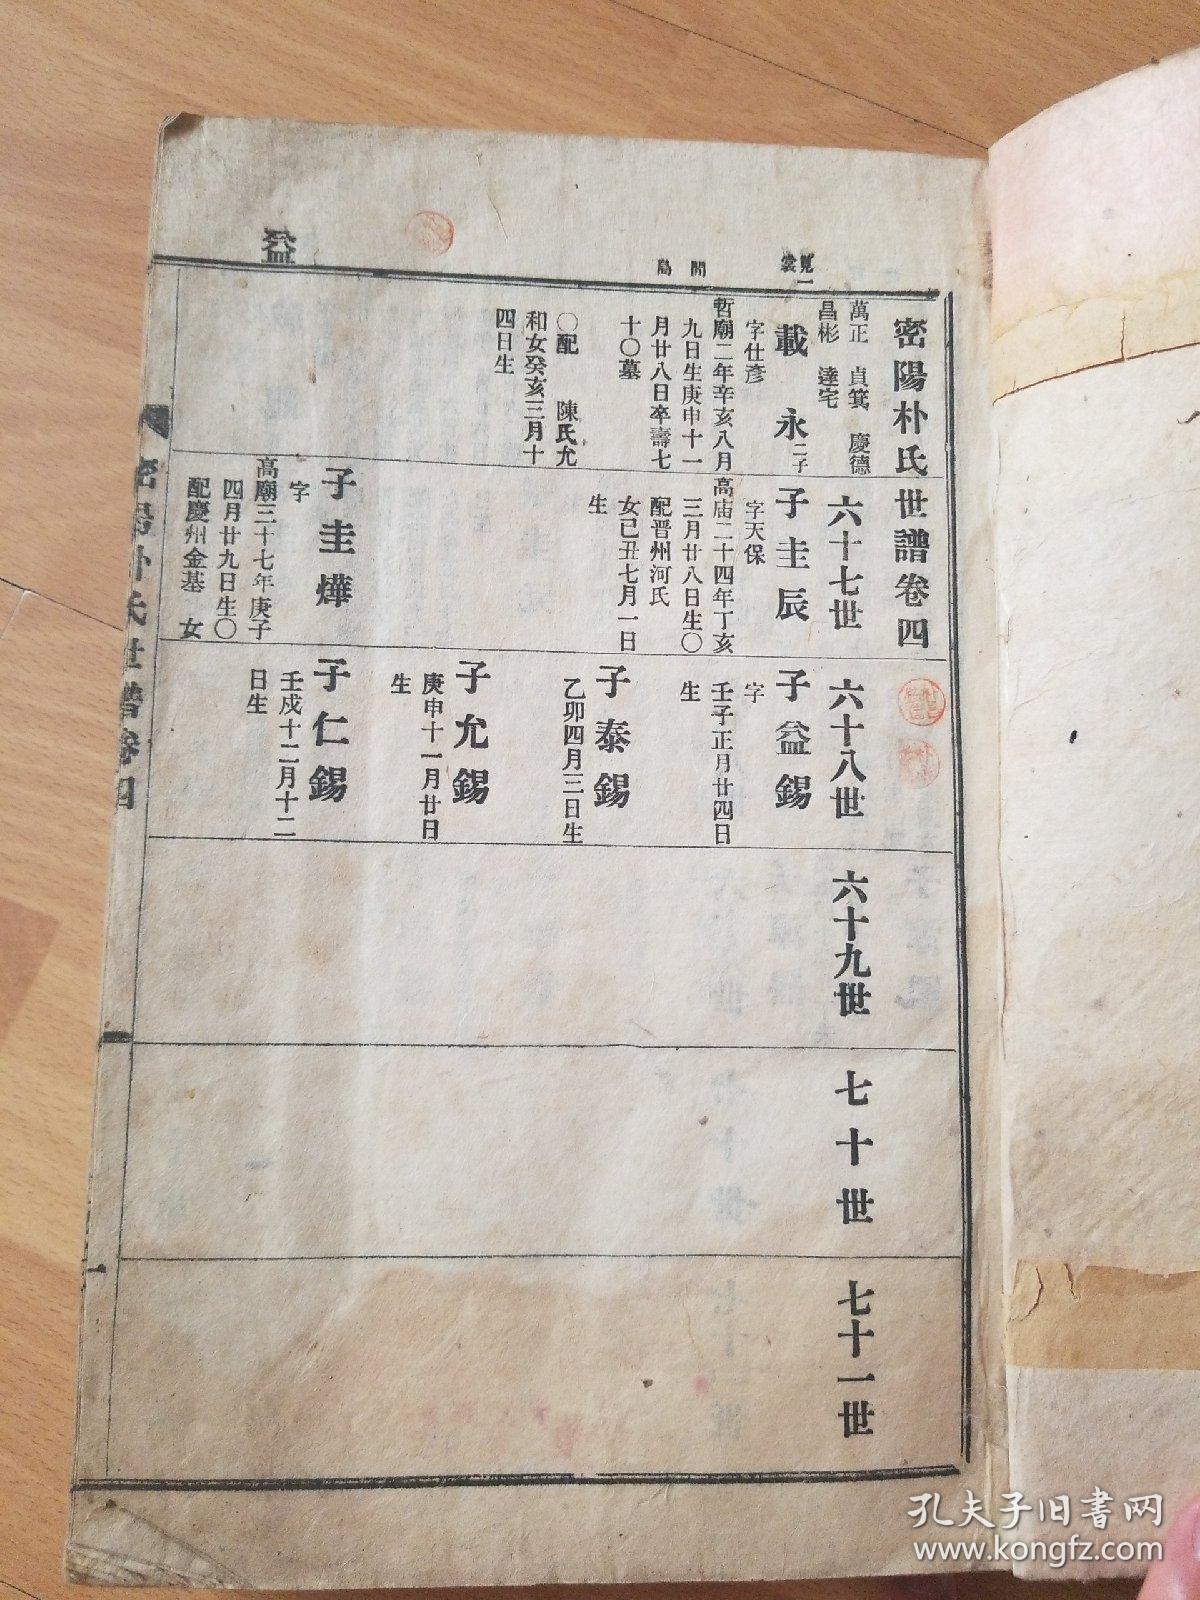 益
密陽朴氏世譜卷四
萬正 貞箕 慶德
昌彬 達宅
載永 二子
字仕彥
哲廟二年辛亥八月
九日生庚申十一
月廿八日卒壽七
十〇墓
〇配 陳氏允
和女癸亥三月十
四日生
六十七世
子圭辰
字天保
高庙二十四年丁亥
三月廿八日生〇
配晋州河氏
女己丑七月一日
生
子圭燁
字
高廟三十七年庚子
四月廿九日生〇
配慶州金基 女
六十八世
子益錫
字
壬子正月廿四日
生
子泰錫
乙卯四月三日生
子允錫
庚申十一月廿日
生
子仁錫
壬戌十二月十二
日生
六十九世
七十世
七十一世
密陽朴氏世譜卷四
一
孔夫子旧书网
www.kongfz.com